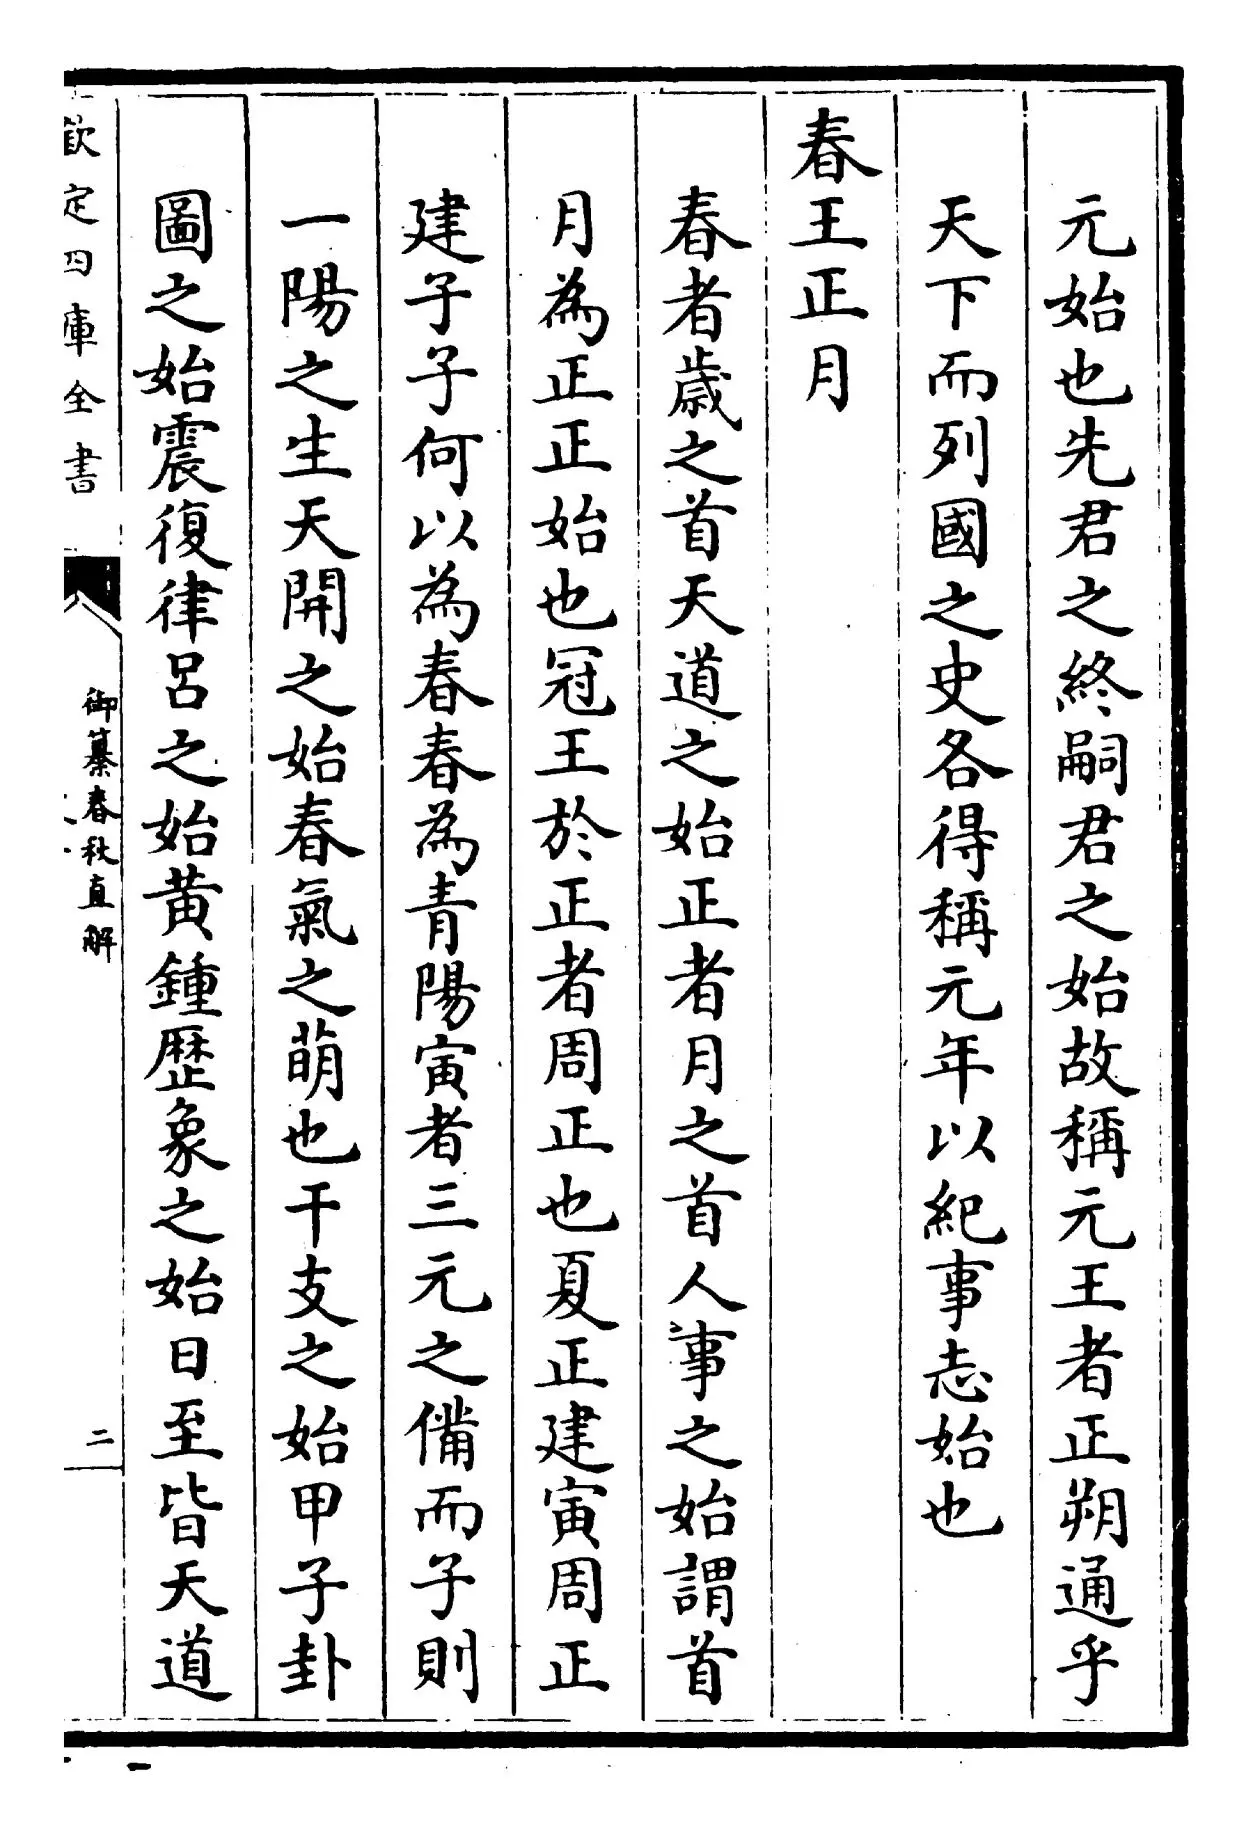 元始也先君之終嗣君之始故稱元王者正朔通乎
天下而列國之史各得稱元年以紀事志始也
春王正月
春者歲之首天道之始正者月之首人事之始謂首
月為正正始也冠王於正者周正也夏正建寅周正
建子子何以為春春為青陽寅者三元之備而子則
一陽之生天開之始春氣之萌也干支之始甲子卦
圖之始震復律呂之始黃鍾歴象之始日至皆天道
欽定四庫全書
御纂春秋直解
二